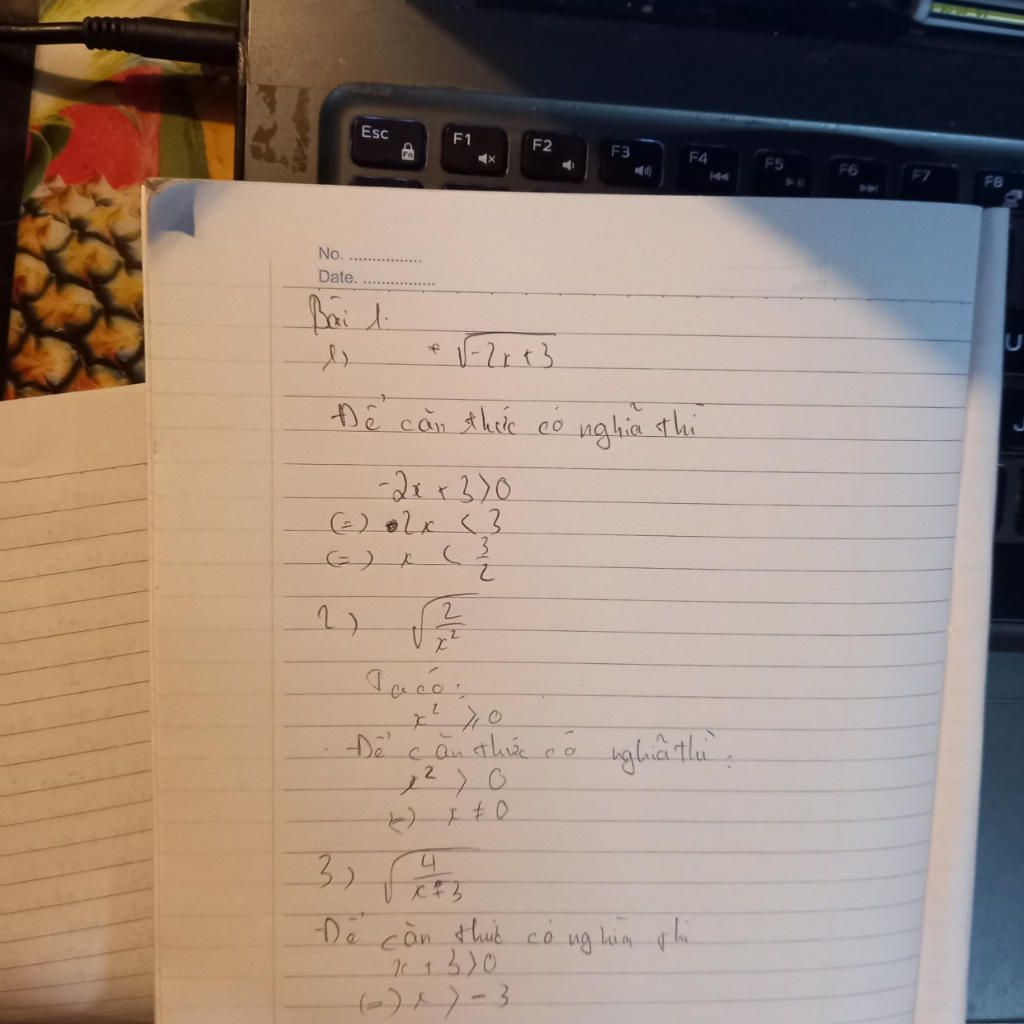 Esc
Fn
F1
F2
F3
F4
F5
F6
F7
F8
U
J
No. ................
Date. ................
Bài 1.
1) * √-2x + 3
Để căn thức có nghĩã thì
-2x + 3 > 0
(=) 2x < 3
(=) x < 3/2
2) √2/x²
Ta có:
x² ⩾ 0
Để căn thức có nghĩã thì:
x² > 0
(=) x ≠ 0
3) √4/x+3
Để căn thức có nghĩa thì
x + 3 > 0
(=) x > -3